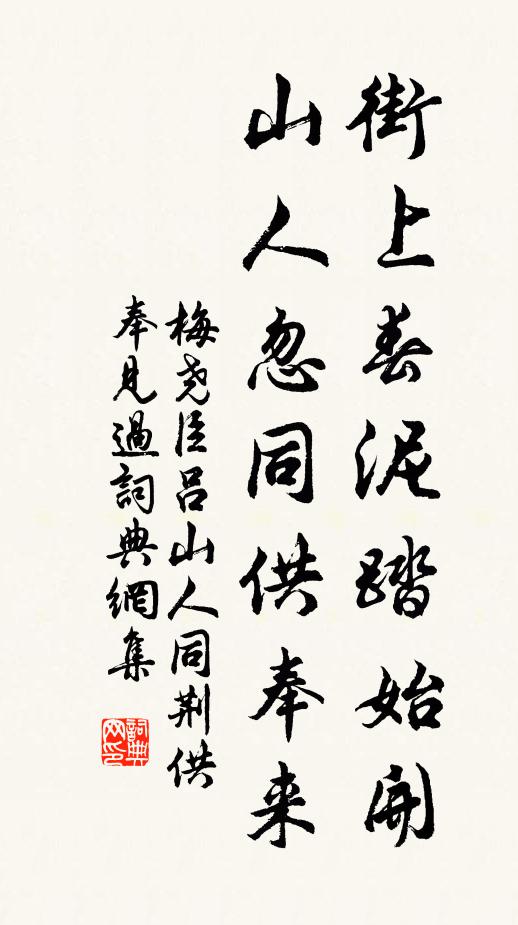 街上春泥踏始開
山人忽同供奉来
梅尧臣吕山人同荆供
奉見過詞典網集
詞典網印